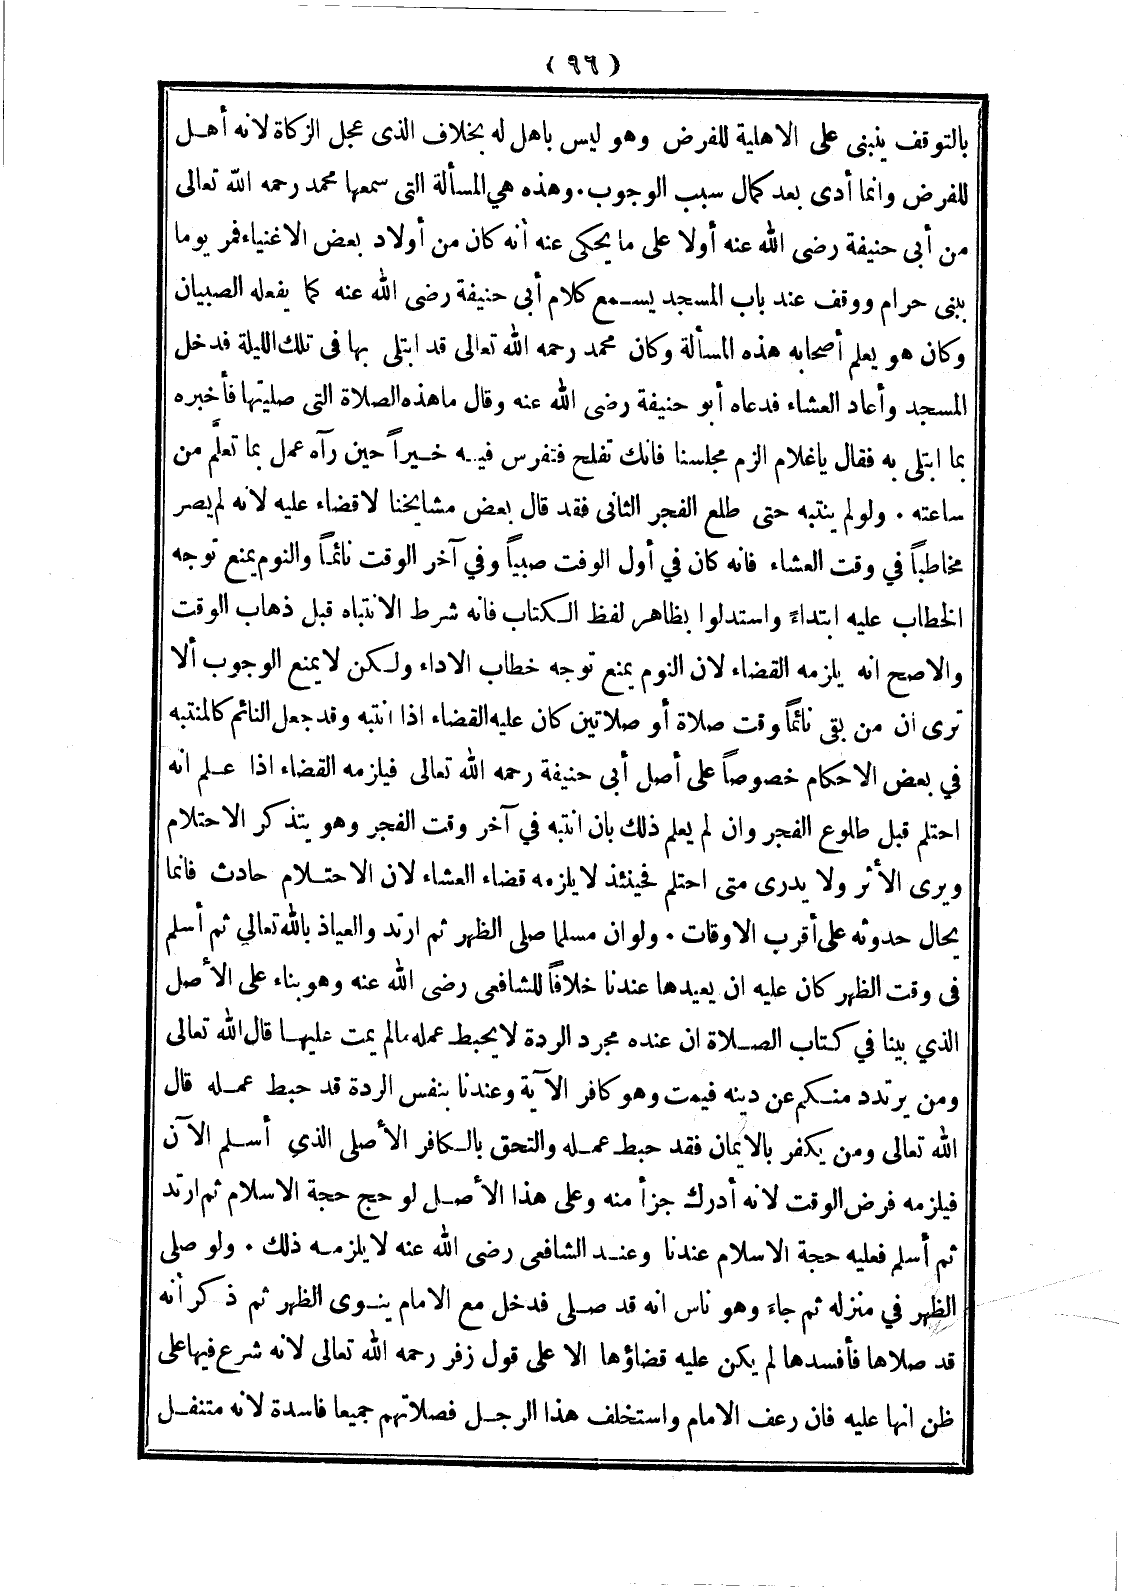 (٩٦)
بالتوقف ينبنى على الاهلية للفرض وهو ليس باهل له بخلاف الذى عجل الزكاة لانه أهل
للفرض وانما أدى بعد كمال سبب الوجوب. وهذه هي المسألة التى سمعها محمد رحمه الله تعالى
من أبى حنيفة رضى الله عنه أولا على ما يحكى عنه أنه كان من أولاد بعض الاغنياء فمر يوما
ببنى حرام ووقف عند باب المسجد يسمع كلام أبى حنيفة رضى الله عنه كما يفعله الصبيان
وكان هو يعلم أصحابه هذه المسألة وكان محمد رحمه الله تعالى قد ابتلى بها فى تلك الليلة فدخل
المسجد وأعاد العشاء فدعاه أبو حنيفة رضى الله عنه وقال ما هذه الصلاة التى صليتها فأخبره
بما ابتلى به فقال ياغلام الزم مجلسنا فانك تفلح فتفرس فيه خيراً حين رآه عمل بما تعلَّم من
ساعته. ولو لم ينتبه حتى طلع الفجر الثانى فقد قال بعض مشايخنا لا قضاء عليه لانه لم يصر
مخاطباً في وقت العشاء فانه كان في أول الوقت صبياً وفي آخر الوقت نائماً والنوم يمنع توجه
الخطاب عليه ابتداءً واستدلوا بظاهر لفظ الكتاب فانه شرط الانتباه قبل ذهاب الوقت
والاصح انه يلزمه القضاء لان النوم يمنع توجه خطاب الاداء ولكن لا يمنع الوجوب ألا
ترى ان من بقى نائماً وقت صلاة أو صلاتين كان عليه القضاء اذا انتبه وقد جعل النائم كالمنتبه
في بعض الاحكام خصوصاً على أصل أبى حنيفة رحمه الله تعالى فيلزمه القضاء اذا علم انه
احتلم قبل طلوع الفجر وان لم يعلم ذلك بان انتبه في آخر وقت الفجر وهو يتذكر الاحتلام
ويرى الأثر ولا يدرى متى احتلم فحينئذ لا يلزمه قضاء العشاء لان الاحتلام حادث فانما
يحال حدوثه على أقرب الاوقات. ولو ان مسلما صلى الظهر ثم ارتد والعياذ بالله تعالي ثم أسلم
فى وقت الظهر كان عليه ان يعيدها عندنا خلافاً للشافعى رضى الله عنه وهو بناء على الأصل
الذي بينا في كتاب الصلاة ان عنده مجرد الردة لا يحبط عمله مالم يمت عليها قال الله تعالى
ومن يرتدد منكم عن دينه فيمت وهو كافر الآية وعندنا بنفس الردة قد حبط عمله قال
الله تعالى ومن يكفر بالايمان فقد حبط عمله والتحق بالكافر الأصلى الذي أسلم الآن
فيلزمه فرض الوقت لانه أدرك جزأ منه وعلى هذا الأصل لو حج حجة الاسلام ثم ارتد
ثم أسلم فعليه حجة الاسلام عندنا وعند الشافعى رضى الله عنه لا يلزمه ذلك. ولو صلى
الظهر في منزله ثم جاء وهو ناس انه قد صلى فدخل مع الامام ينوى الظهر ثم ذكر أنه
قد صلاها فأفسدها لم يكن عليه قضاؤها الا على قول زفر رحمه الله تعالى لانه شرع فيها على
ظن انها عليه فان رعف الامام واستخلف هذا الرجل فصلاتهم جميعا فاسدة لانه متنفل